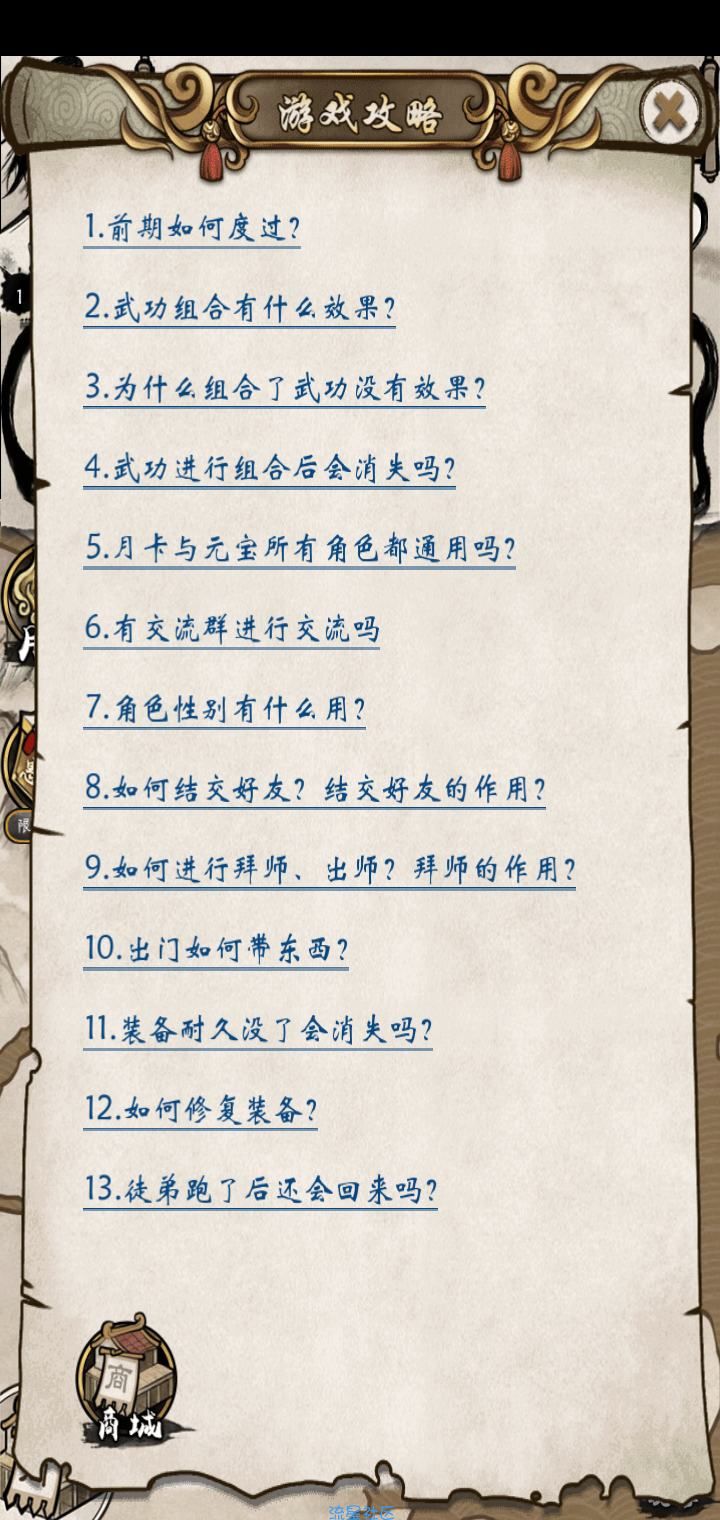 游戏攻略
1.前期如何度过?
2.武功组合有什么效果?
1
3.为什么组合了武功没有效果?
4.武功进行组合后会消失吗?
5.月卡与元宝所有角色都通用吗?
6.有交流群进行交流吗
7.角色性别有什么用?
8.如何结交好友? 结交好友的作用?
限
9.如何进行拜师、出师? 拜师的作用?
10.出门如何带东西?
11.装备耐久没了会消失吗?
12.如何修复装备?
13.徒弟跑了后还会回来吗?
商
商城
流星社区